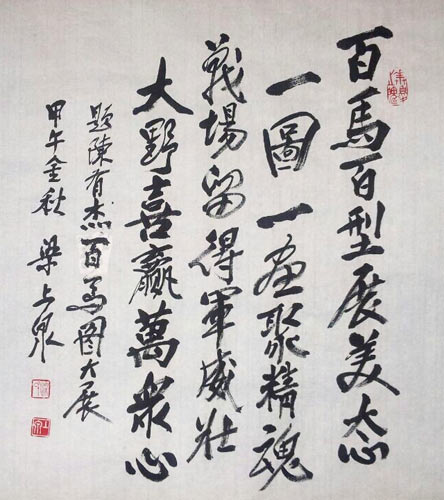 百馬百型展美态
一圖一畫聚精魂
戰場留得軍威壯
大野喜贏萬衆心
题陳有杰百馬图大展
甲午金秋 梁上泉